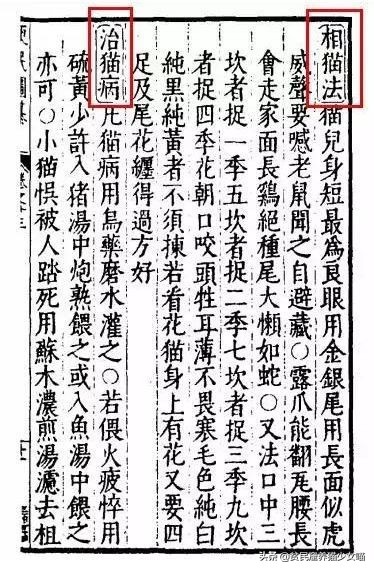 相猫法猫兒身短最爲良眼用金銀尾用長面似虎
威聲要喊老鼠聞之自避藏○露爪能翻瓦腰長
會走家面長鷄絕種尾大懶如蛇○又法口中三
坎者捉一季五坎者捉二季七坎者捉三季九坎
者捉四季花朝口咬頭牲耳薄不畏寒毛色純白
純黑純黃者不須揀若看花猫身上有花又要四
足及尾花纏得過方好
治猫病凡猫病用烏藥磨水灌之○若偎火疲悴用
硫黃少許入猪湯中炮熟餵之或入魚湯中餵之
亦可○小猫悞被人踏死用蘇木濃煎湯濾去柤
头条 @贫民窟养猫少女喵